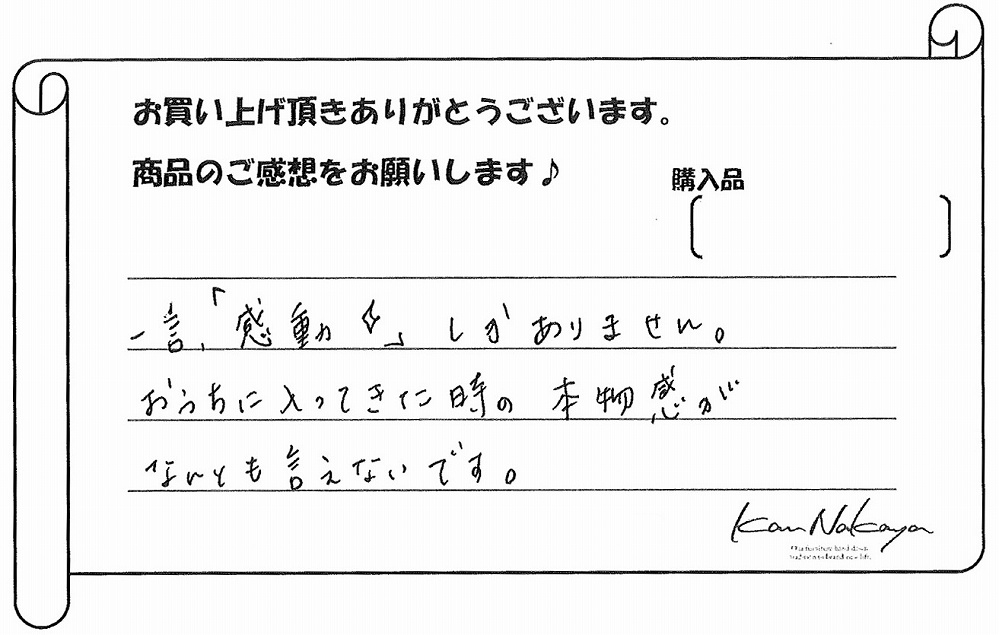 お買い上げ頂きありがとうございます。
商品のご感想をお願いします♪
購入品
一言、「感動✨」しかありません。
おうちに入ってきた時の 本物感が
なんとも言えないです。
Kan Nakaya